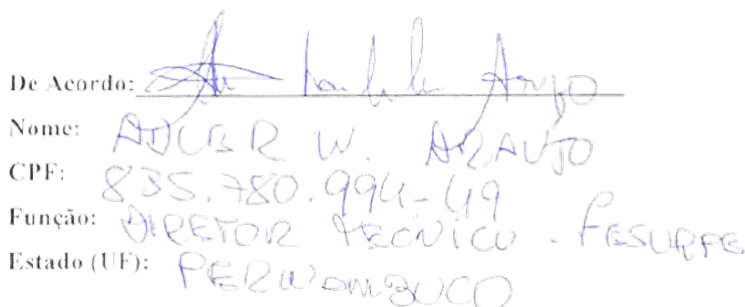 De Acordo: Araujo
Nome: ADLER W. ARAUJO
CPF: 835.780.994-49
Função: DIRETOR TECNICO - FESURPE
Estado (UF): PERNAMBUCO